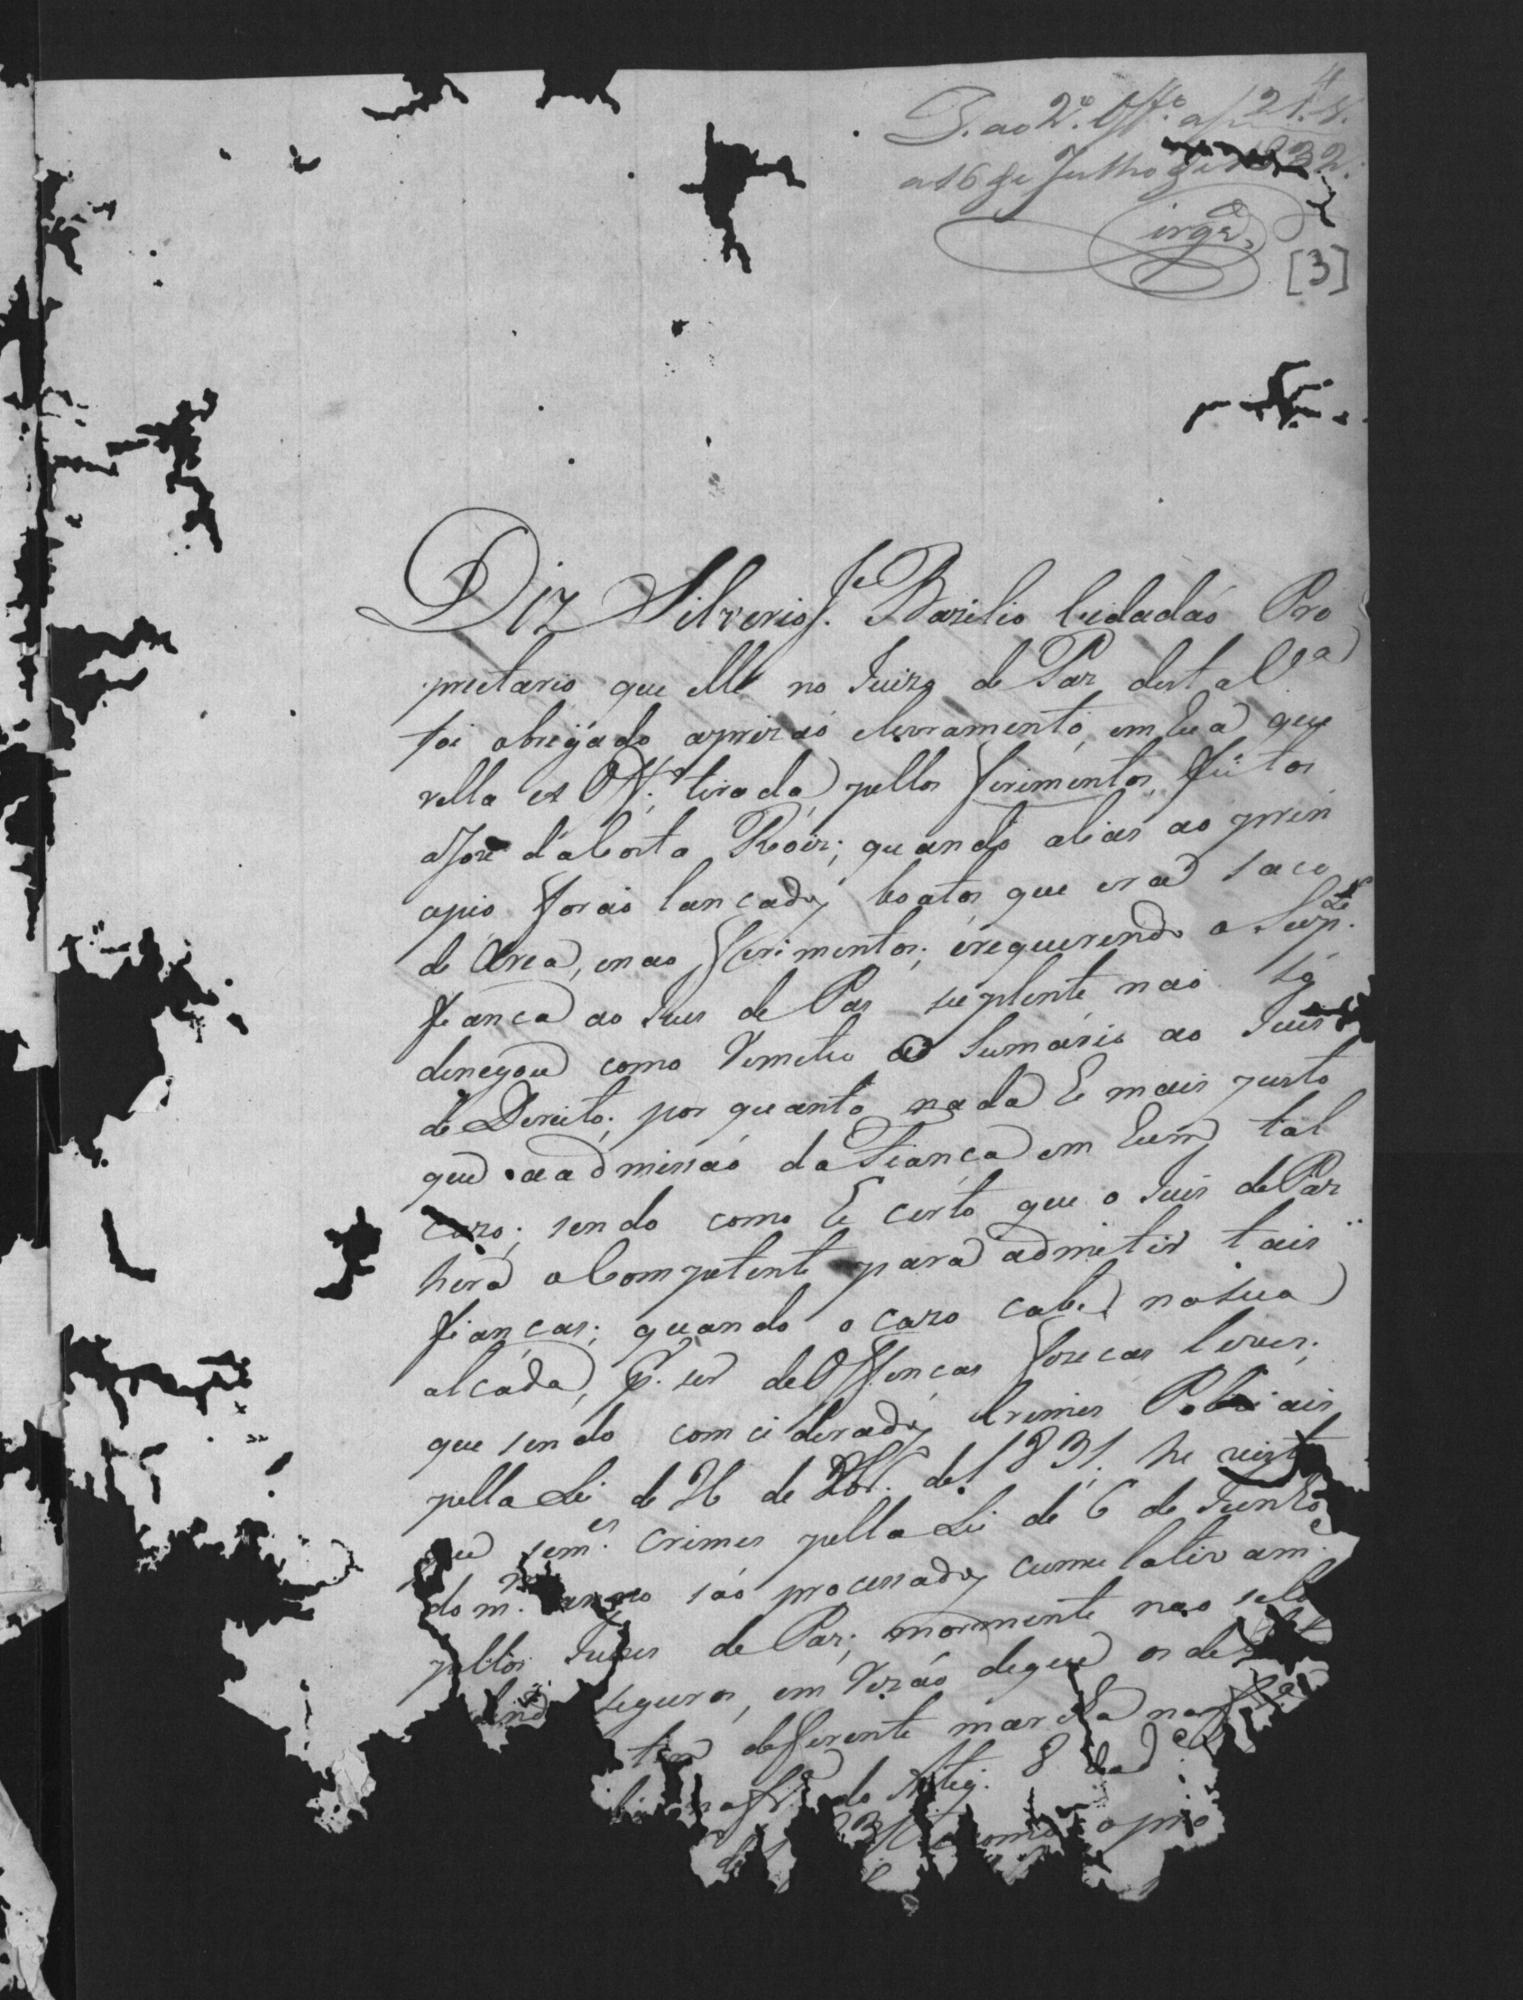 4
D. ao 2º. Offº. a f 21. v.
a 16 de Julho de 1832.
[3]
Diz Silverio Je. Bazilio Cidadaó Pro
prietario que elle no Juizo de Paz desta Va
foi obrigado aprizaó elivramento, em hua que
rella ex Offº. tirada pellos ferimentos feitos
a Joze d'aCosta Roiz; quando alias ao prin
cipio foraó lançados boatos que era saco
de Area, enaó ferimentos; erequerendo o Supte.
fiança ao Juis de Paz suplente naó só
denegou como Remeteo o Sumario ao Juis
de Dereito; por quanto nada he mais justo
que a admissaó da Fiança em hum tal
cazo; sendo como he certo que o Juis de Paz
hera o Competente para admetir tais
fianças; quando o cazo cabe na sua
alçada, p. ser de Offenças fizecas leves;
que sendo comciderados Crimes Policiais
pella Lei de 26 de 8br. de 1831. he visto
que semes. crimes pella Lei de 6 de Junho
do mº. anno saó processados cumulativame.
pellos Juizes de Paz; mormente naó
seguros, em Rezaó deque os de
tem defferente marcha na
do Artig. 8
como o pro